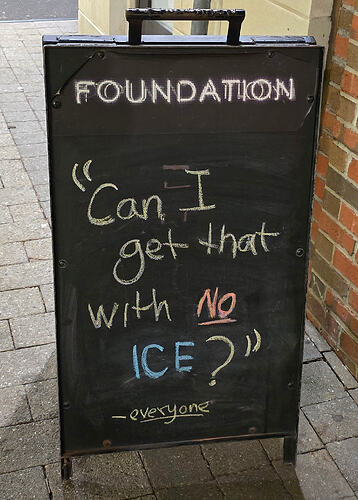 FOUNDATION
"Can I
get that
with NO
ICE?"
- everyone